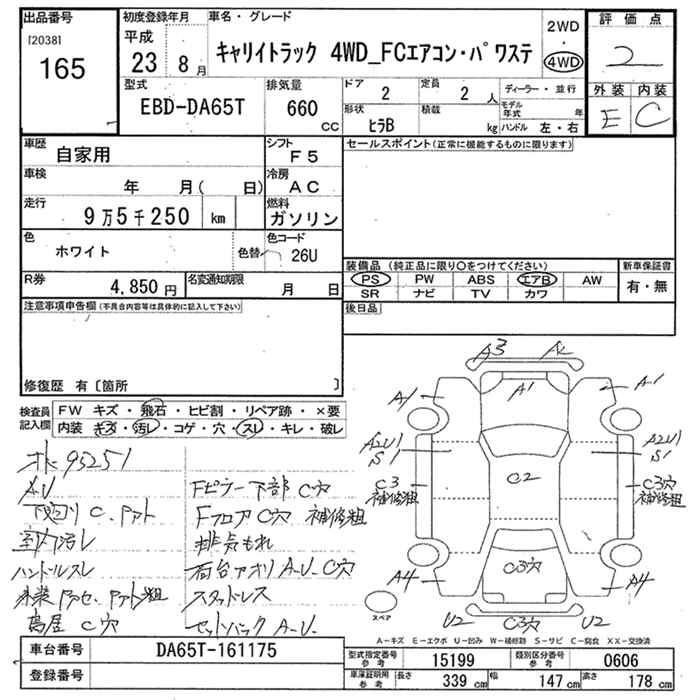 出品番号
[2038]
165
初度登録年月
平成
23 8月
車名・グレード
キャリイトラック 4WD_FCエアコン・パワステ
2WD
・
4WD
評価点
2
外装 内装
E C
型式
EBD-DA65T
排気量
660
cc
ドア
2
定員
2人
形状
ヒラB
積載
kg
ディーラー・並行
モデル年式 年
ハンドル 左・右
車歴
自家用
シフト
F5
車検
年 月( 日)
冷房
AC
走行
9万5千250 km
燃料
ガソリン
色
ホワイト
色替
色コード
26U
R券
4,850円
名変通知期限
月 日
セールスポイント(正常に機能するものに限ります)
装備品 (純正品に限り○をつけてください)
PS PW ABS エアB AW
SR ナビ TV カワ
新車保証書
有・無
後日品
注意事項申告欄(不具合内容等は具体的に記入して下さい)
修復歴 有〔箇所 〕
検査員記入欄
FW キズ・飛石・ヒビ割・リペア跡・×要
内装 キズ・汚レ・コゲ・穴・スレ・キレ・破レ
オド 95251
A.U
下回り C.Pアト
室内汚レ
ハンドルスレ
外装 Pアセ.Pアト粗
鳥居 C穴
Fピラー下部 C穴
Fフロア C穴 補修粗
排気もれ
荷台アオリ A.U.C穴
スタッドレス
セットバック A.U.
A3 A2
A1
A1 A1
A2U1
S1
A2U1
S1
C2
C3
補修粗
C3穴
補修粗
C3穴
A4 A4
U2 C3穴 U2
スペア
A-キズ E-エクボ U-凹み W-補修跡 S-サビ C-腐食 XX-交換済
車台番号
DA65T-161175
登録番号
型式指定番号
参考
15199
類別区分番号
参考
0606
車庫証明用
参考
長さ 339cm
幅 147cm
高さ 178cm